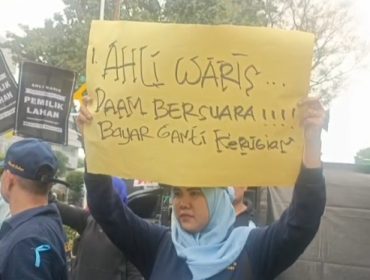 1. AHLI WARIS...
DAAM BERSUARA!!!!
BAYAR GANTI KERUGIAN
AHLI WARIS
PEMILIK
LAHAN